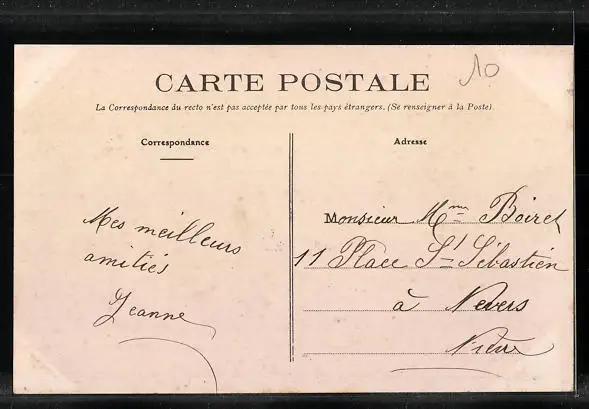 10
CARTE POSTALE
La Correspondance du recto n'est pas acceptée par tous les pays étrangers. (Se renseigner à la Poste).
Correspondance
Mes meilleurs
amitiés
Jeanne
Adresse
Monsieur Mme Boiret
11 Place St Sébastien
à Nevers
Nièvre